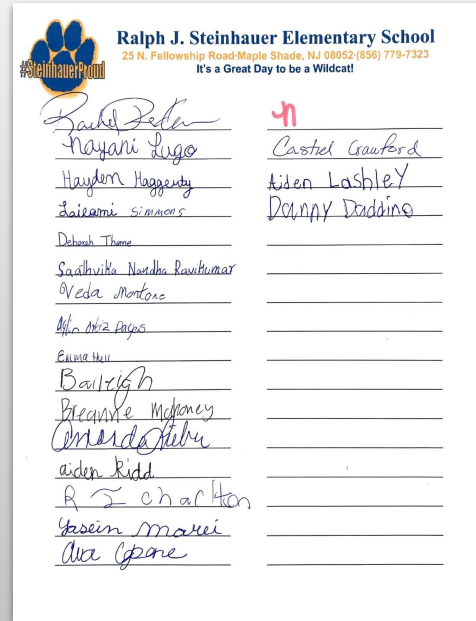 #SteinhauerProud
Ralph J. Steinhauer Elementary School
25 N. Fellowship Road·Maple Shade, NJ 08052·(856) 779-7323
It's a Great Day to be a Wildcat!
Rachel
Nayani Lugo
Hayden Haggerty
Laileami Simmons
Deborah Thame
Saathvika Nandha Ravikumar
Veda Montone
Ortiz
Emma Hell
Baileigh
Breanne Mahoney
Amanda
aiden Kidd
R I charlton
Yasein Marei
Ava Capone
n
Castiel Crawford
Aiden Lashley
Danny Daddino